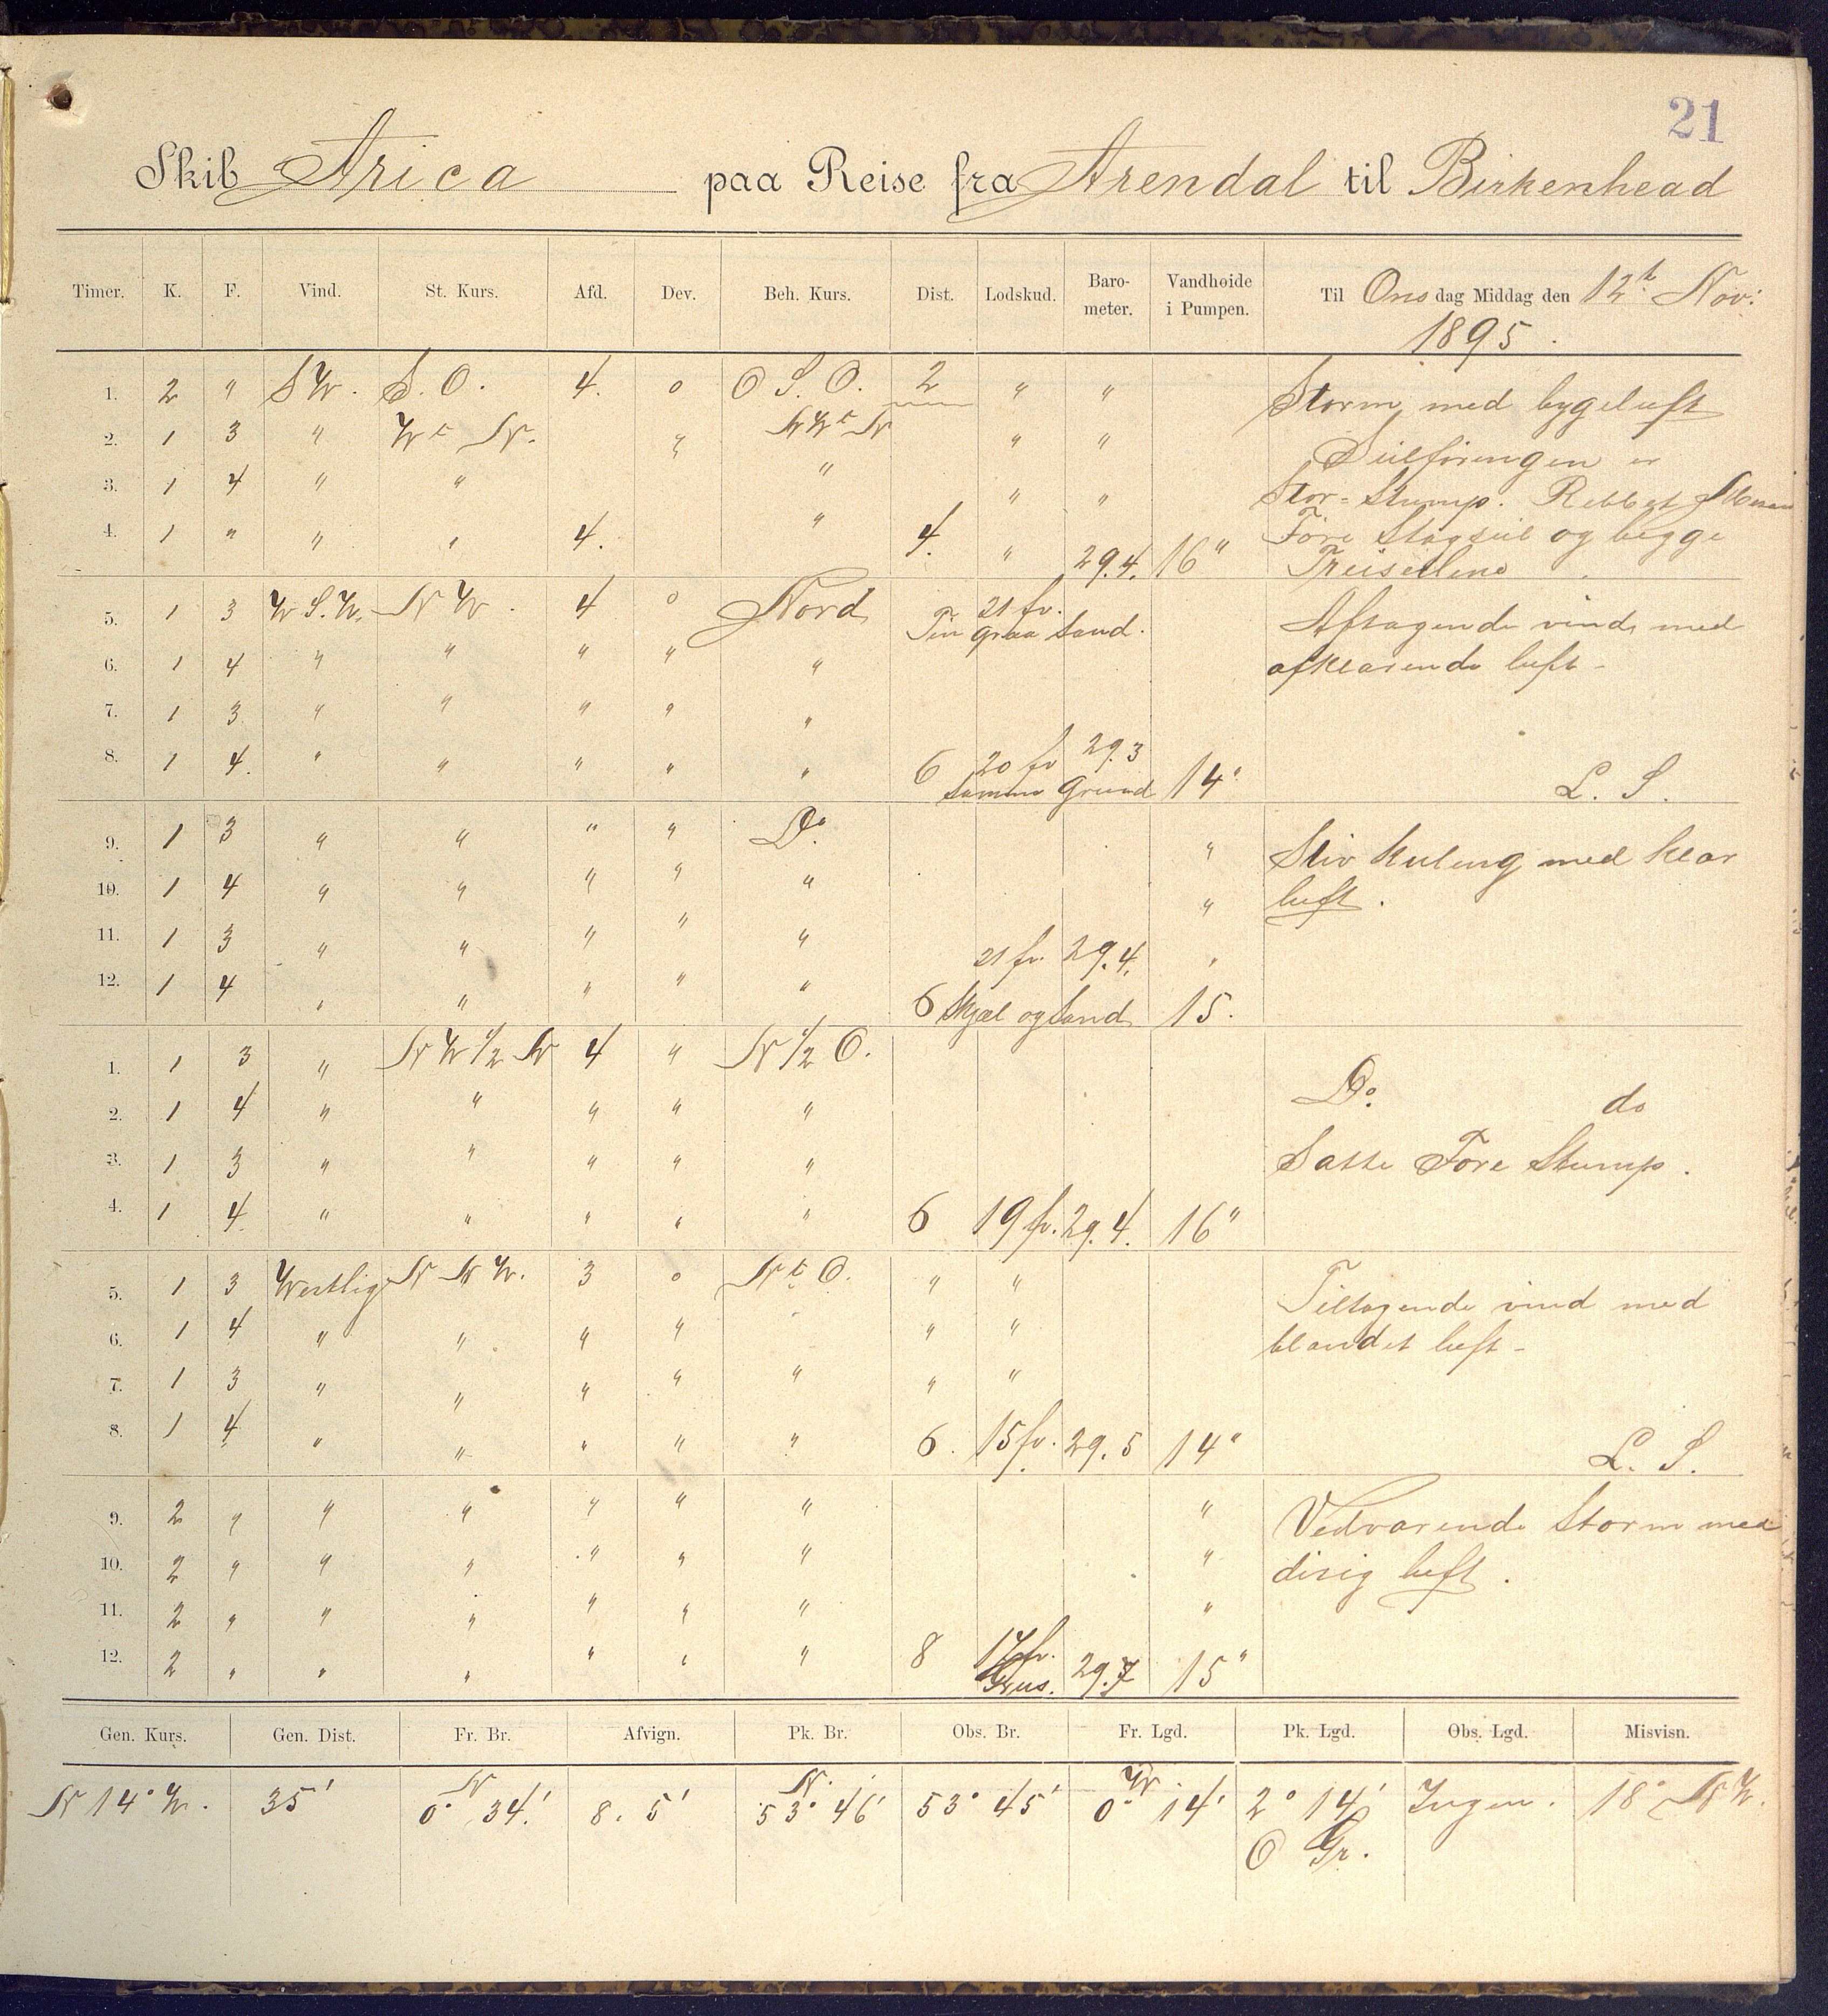 21
Skib Arica paa Reise fra Arendal til Birkenhead
Timer. K. F. Vind. St. Kurs. Afd. Dev. Beh. Kurs. Dist. Lodskud. Baro-meter. Vandhøide i Pumpen. Til Onsdag Middag den 12te Nov: 1895.
1. 2 " SW. S.O. 4. 0 O S.O. 2 " " Storm, med bygeluft
2. 1 3 " W t N. " NW t N " " Seilføringen er
3. 1 4 " " " " " Stor=Stump. Rebbet Mesan
4. 1 " " " 4. " 4. " 29.4. 16" Fore Stagseil og begge
Treiseilene
5. 1 3 W S.W. N W. 4 0 Nord 21 fv. Fin graa Sand. Aftagende vind med
6. 1 4 " " " " " afklarende luft-
7. 1 3 " " " " "
8. 1 4. " " " " " 6 20 fv 29.3 Samme Grund 14" L. S.
9. 1 3 " " " " Do " Stiv kuling med klar
10. 1 4 " " " " " " luft.
11. 1 3 " " " " " 21 fv. 29.4. "
12. 1 4 " " " " " 6 Skjæl og Sand 15.
1. 1 3 " N W 1/2 N 4 " N 1/2 O.
2. 1 4 " " " " " Do. do
3. 1 3 " " " " " Satte Fore Stump.
4. 1 4 " " " " " 6 19 fv. 29.4. 16"
5. 1 3 Westlig N N W. 3 0 N t O. " " Tiltagende vind med
6. 1 4 " " " " " " blandet luft-
7. 1 3 " " " " " " "
8. 1 4 " " " " " 6. 15 fv. 29.5 14" L. S.
9. 2 " " " " " " " Vedvarende Storm med
10. 2 " " " " " " " disig luft.
11. 2 " " " " " " "
12. 2 " " " " " " 8 17 fv. Grus. 29.7 15"
Gen. Kurs. Gen. Dist. Fr. Br. Afvign. Pk. Br. Obs. Br. Fr. Lgd. Pk. Lgd. Obs. Lgd. Misvisn.
N 14° W. 35' N 0° 34.' 8. 5' N. 53° 46' 53° 45' W 0° 14' 2° 14' Ingen. 18° N W.
O Gr.